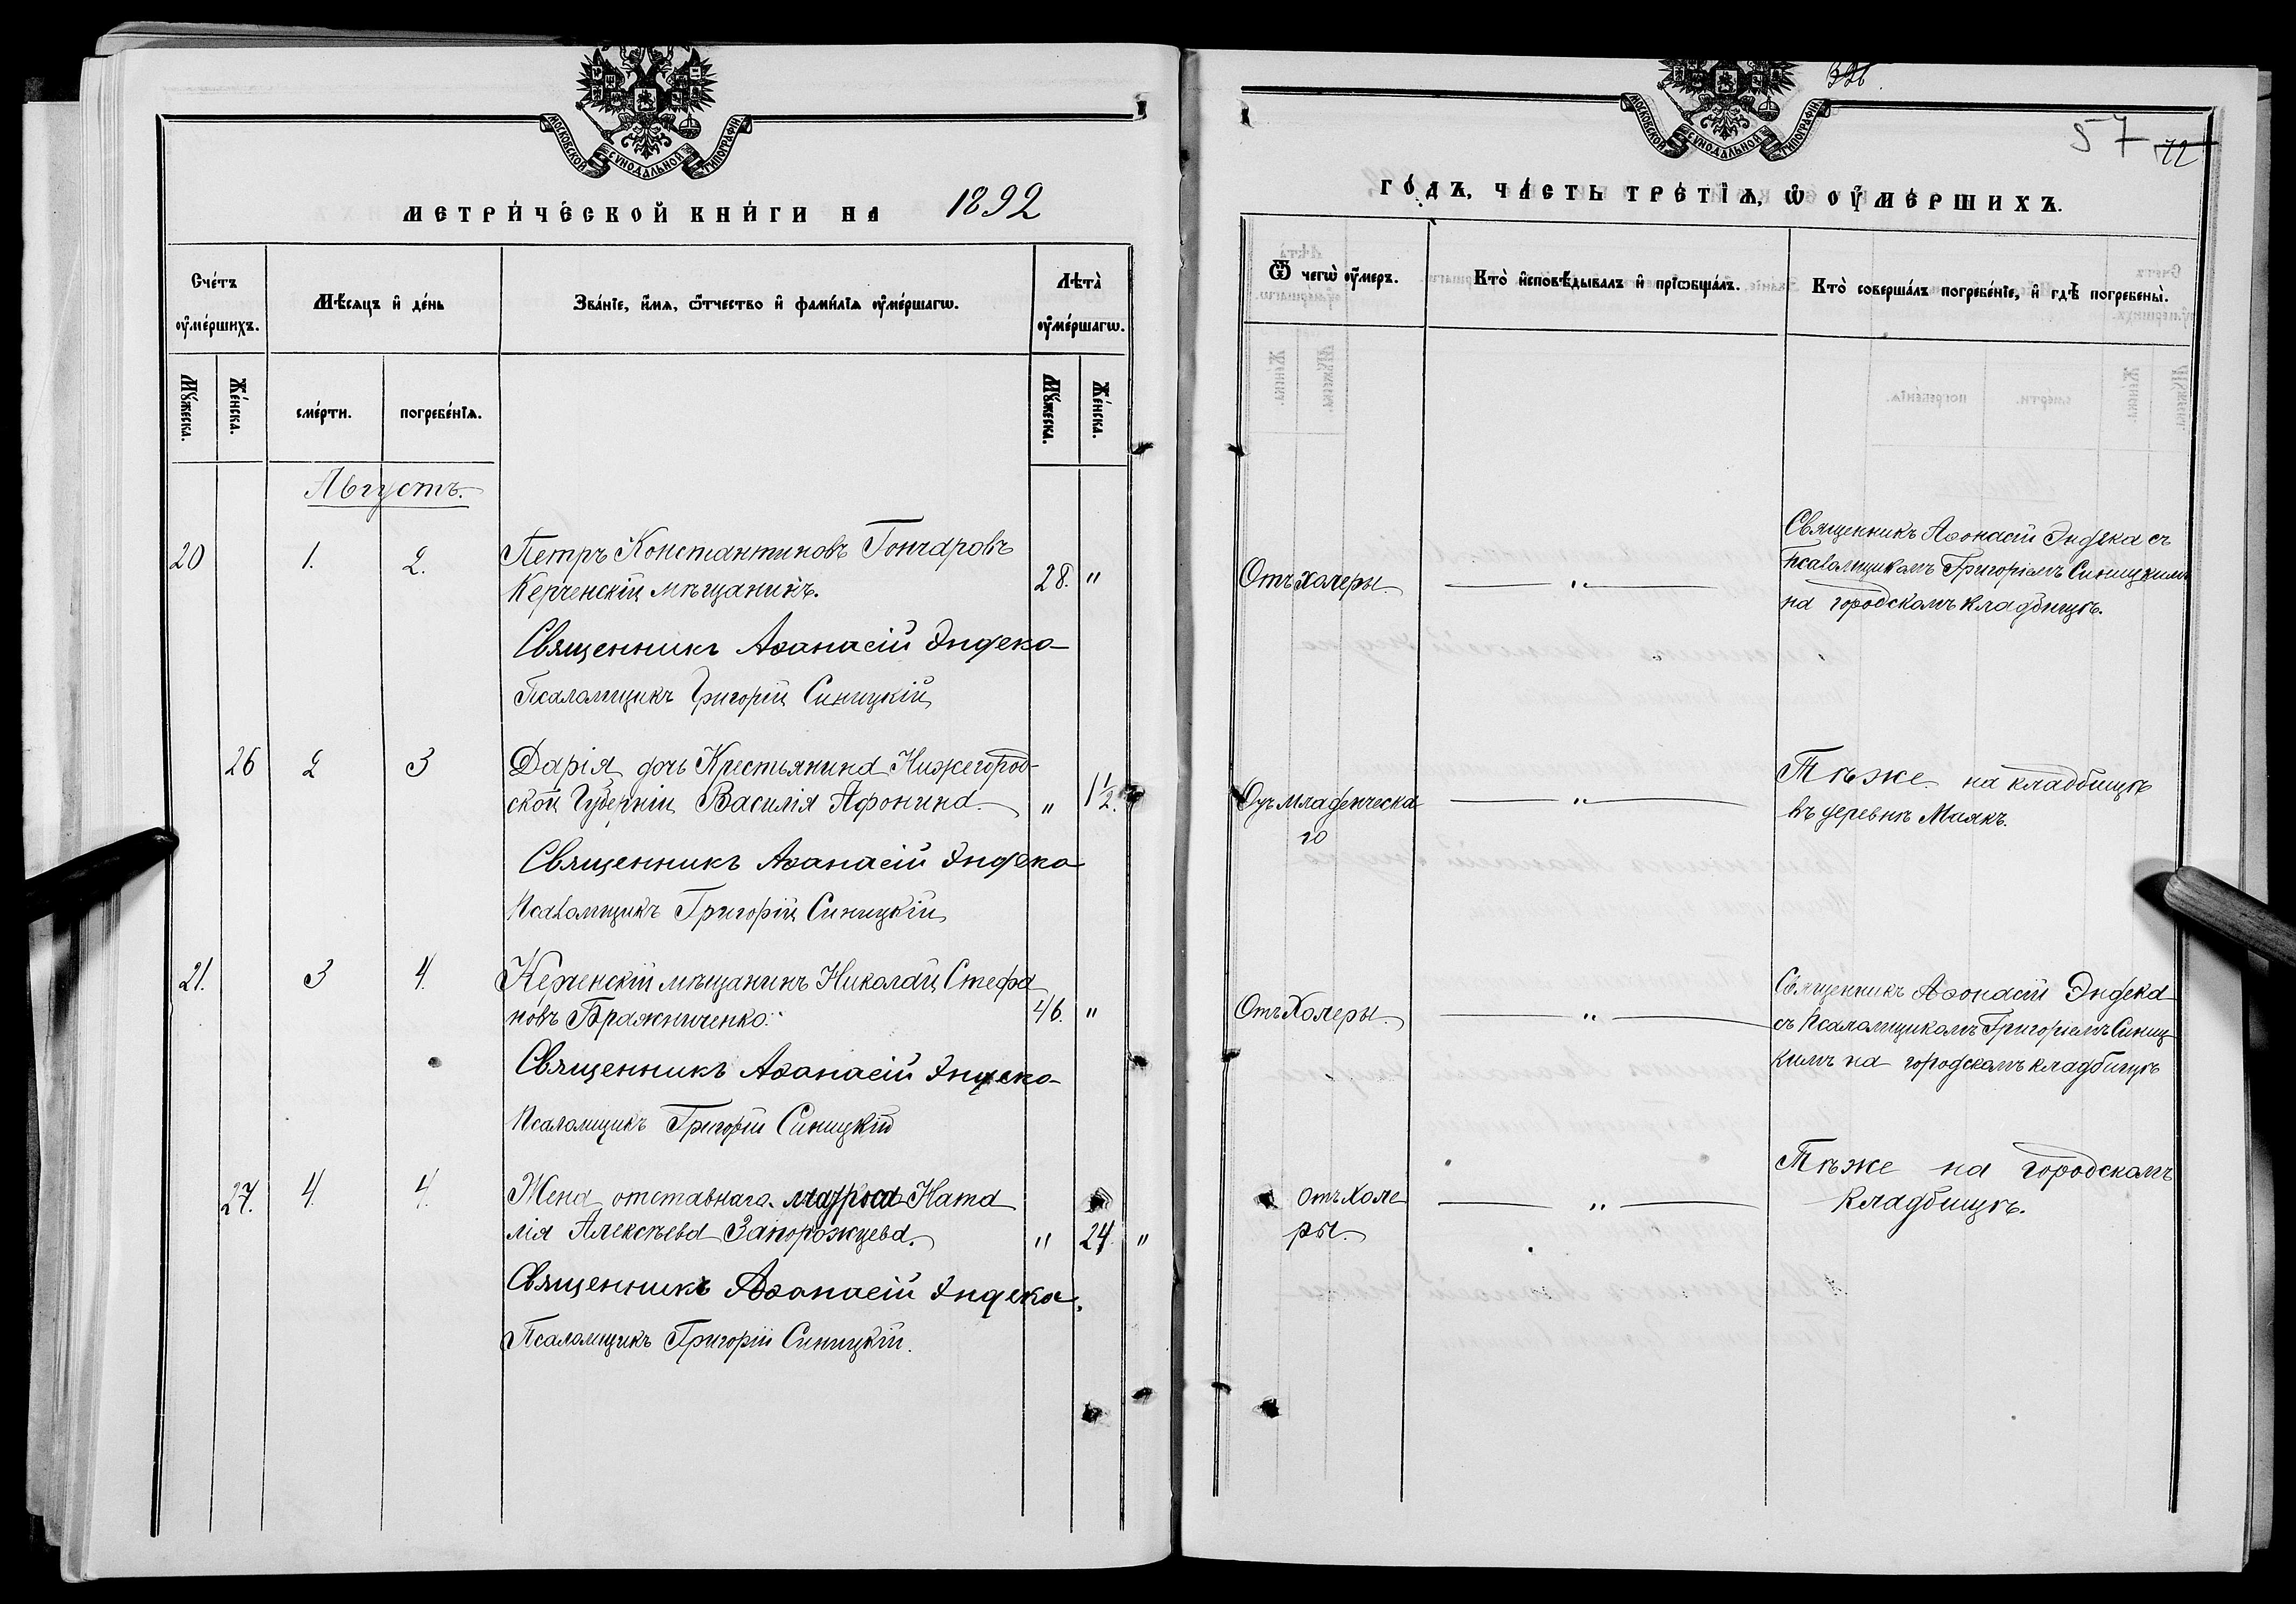 МОСКОВСКОЙ СѴНОДАЛЬНОЙ ТИПОГРАФІИ
МЕТРИ́ЧЕСКОЙ КНИ́ГИ НА 1892
Сче́тъ ᲂу҆ме́ршихъ.
Мѣ́сяцъ и҆ де́нь
Зва́нїе, и҆́мѧ, ѻ҆́тчество и҆ фами́лїѧ ᲂу҆ме́ршагѡ.
Лѣта̀ ᲂу҆ме́ршагѡ.
Мꙋ́жеска.
Же́нска.
сме́рти.
погребе́нїѧ.
Мꙋ́жеска.
Же́нска.
Августъ.
20 1. 2. Петръ Константиновъ Гончаровъ
Керченскій мѣщанинъ. 28. "
Священникъ Аѳанасій Эндека
Псаломщикъ Григорій Синицкій
26 2 3 Дарія дочь Крестьянина Нижегород-
ской Губерніи Василія Афонина. " 1½.
Священникъ Аѳанасій Эндека
Псаломщикъ Григорій Синицкій
21. 3 4. Керченскій мѣщанинъ Николай Стефа
новъ Бражниченко. 46. "
Священникъ Аѳанасій Эндека
Псаломщикъ Григорій Синицкій
27. 4. 4. Жена отставнаго матроса Ната
лія Алексѣева Запорожцева. " 24. "
Священникъ Аѳанасій Эндека.
Псаломщикъ Григорій Синицкій.
326.
57 72
МОСКОВСКОЙ СѴНОДАЛЬНОЙ ТИПОГРАФІИ
ГО́ДЪ, ЧА́СТЬ ТРЕ́ТЇѦ, Ѡ҆ ОУ҆МЕ́РШИХЪ.
Ѿ чегѡ̀ ᲂу҆́меръ.
Кто̀ и҆сповѣ́дывалъ и҆ прїѡбща́лъ.
Кто̀ соверша́лъ погребе́нїе, и҆ гдѣ̀ погребены̀.
Отъ холеры. — " — Священникъ Аѳонасій Эндека съ
Псаломщикомъ Григоріемъ Синицкимъ
на городскомъ кладбищѣ.
Отъ младенческа
го — " — Тѣже на кладбищѣ
въ деревнѣ Маякъ.
Отъ Холеры. — " — Священникъ Аѳонасій Эндека
съ Псаломщикомъ Григоріемъ Синиц
кимъ на городскомъ кладбищѣ
отъ Холе
ры. — " — Тѣже на городскомъ
Кладбищѣ.